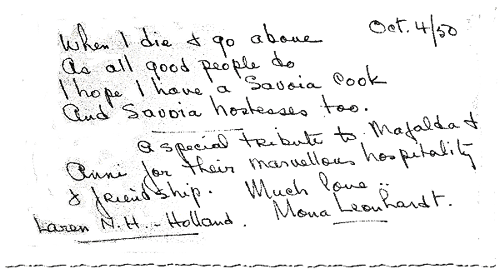 Oct. 4/50
When I die & go above
As all good people do
I hope I have a Savoia Cook
And Savoia hostesses too.
a special tribute to Mafalda &
Anni for their marvellous hospitality
& friendship. Much love ..
Laren N.H. - Holland. Mona Leonhardt.